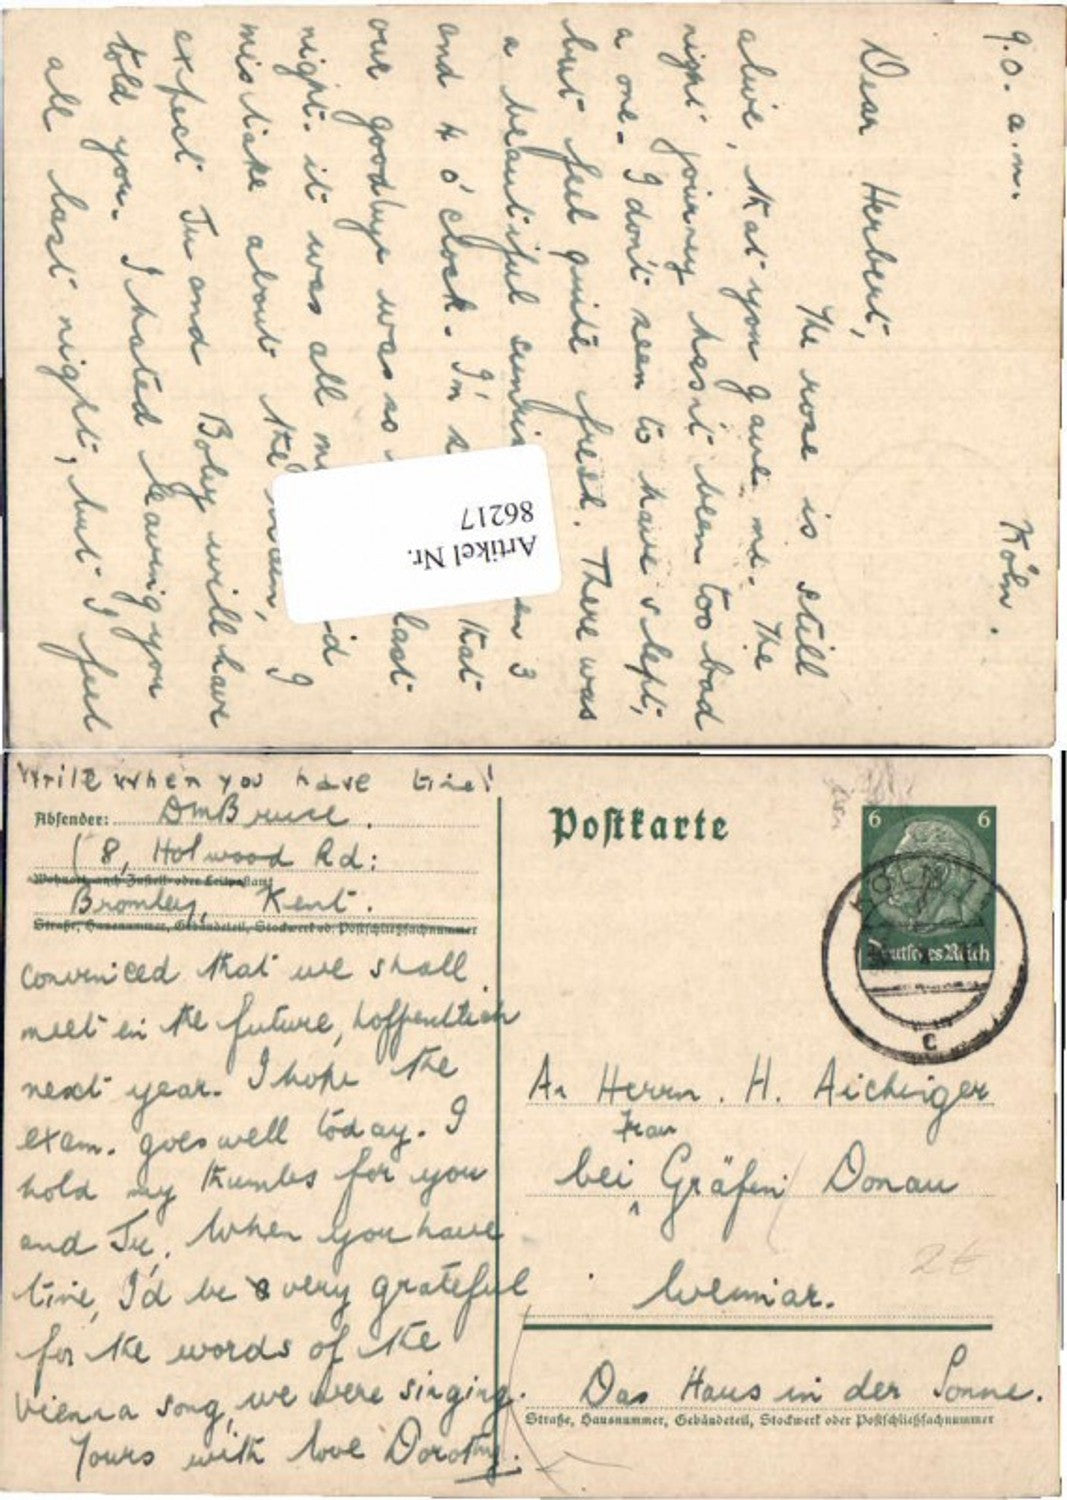 9.0. a.m. Köln.
Dear Herbert,
The rose is still
alive, that you gave me. The
night journey hasn't been too bad
a one. I don't seem to have slept,
but feel quite fresh. There was
a beautiful en 3
and 4 o'clock. I'm that
our goodbye was so last
night. it was all my
mistake about the I
expect Ju and Boby will have
told you. I hated leaving you
all last night, but I feel
Artikel Nr.
86217
Write when you have time!
Absender: DMBruce.
8, Holwood Rd:
Wohnort, auch Zustell- oder Leitpostamt
Bromley, Kent.
Straße, Hausnummer, Gebäudeteil, Stockwerk od. Postschließfachnummer
convinced that we shall
meet in the future, hoffentlich
next year. I hope the
exam. goes well today. I
hold my thumbs for you
and Ju. When you have
time, I'd be very grateful
for the words of the
Vienna song, we were singing.
Yours with love Dorothy.
Postkarte
6 6
Deutsches Reich
KÖLN
c
An Herrn. H. Aichinger
Frau
bei Gräfin Donau
Weimar.
2€
Das Haus in der Sonne.
Straße, Hausnummer, Gebäudeteil, Stockwerk oder Postschließfachnummer